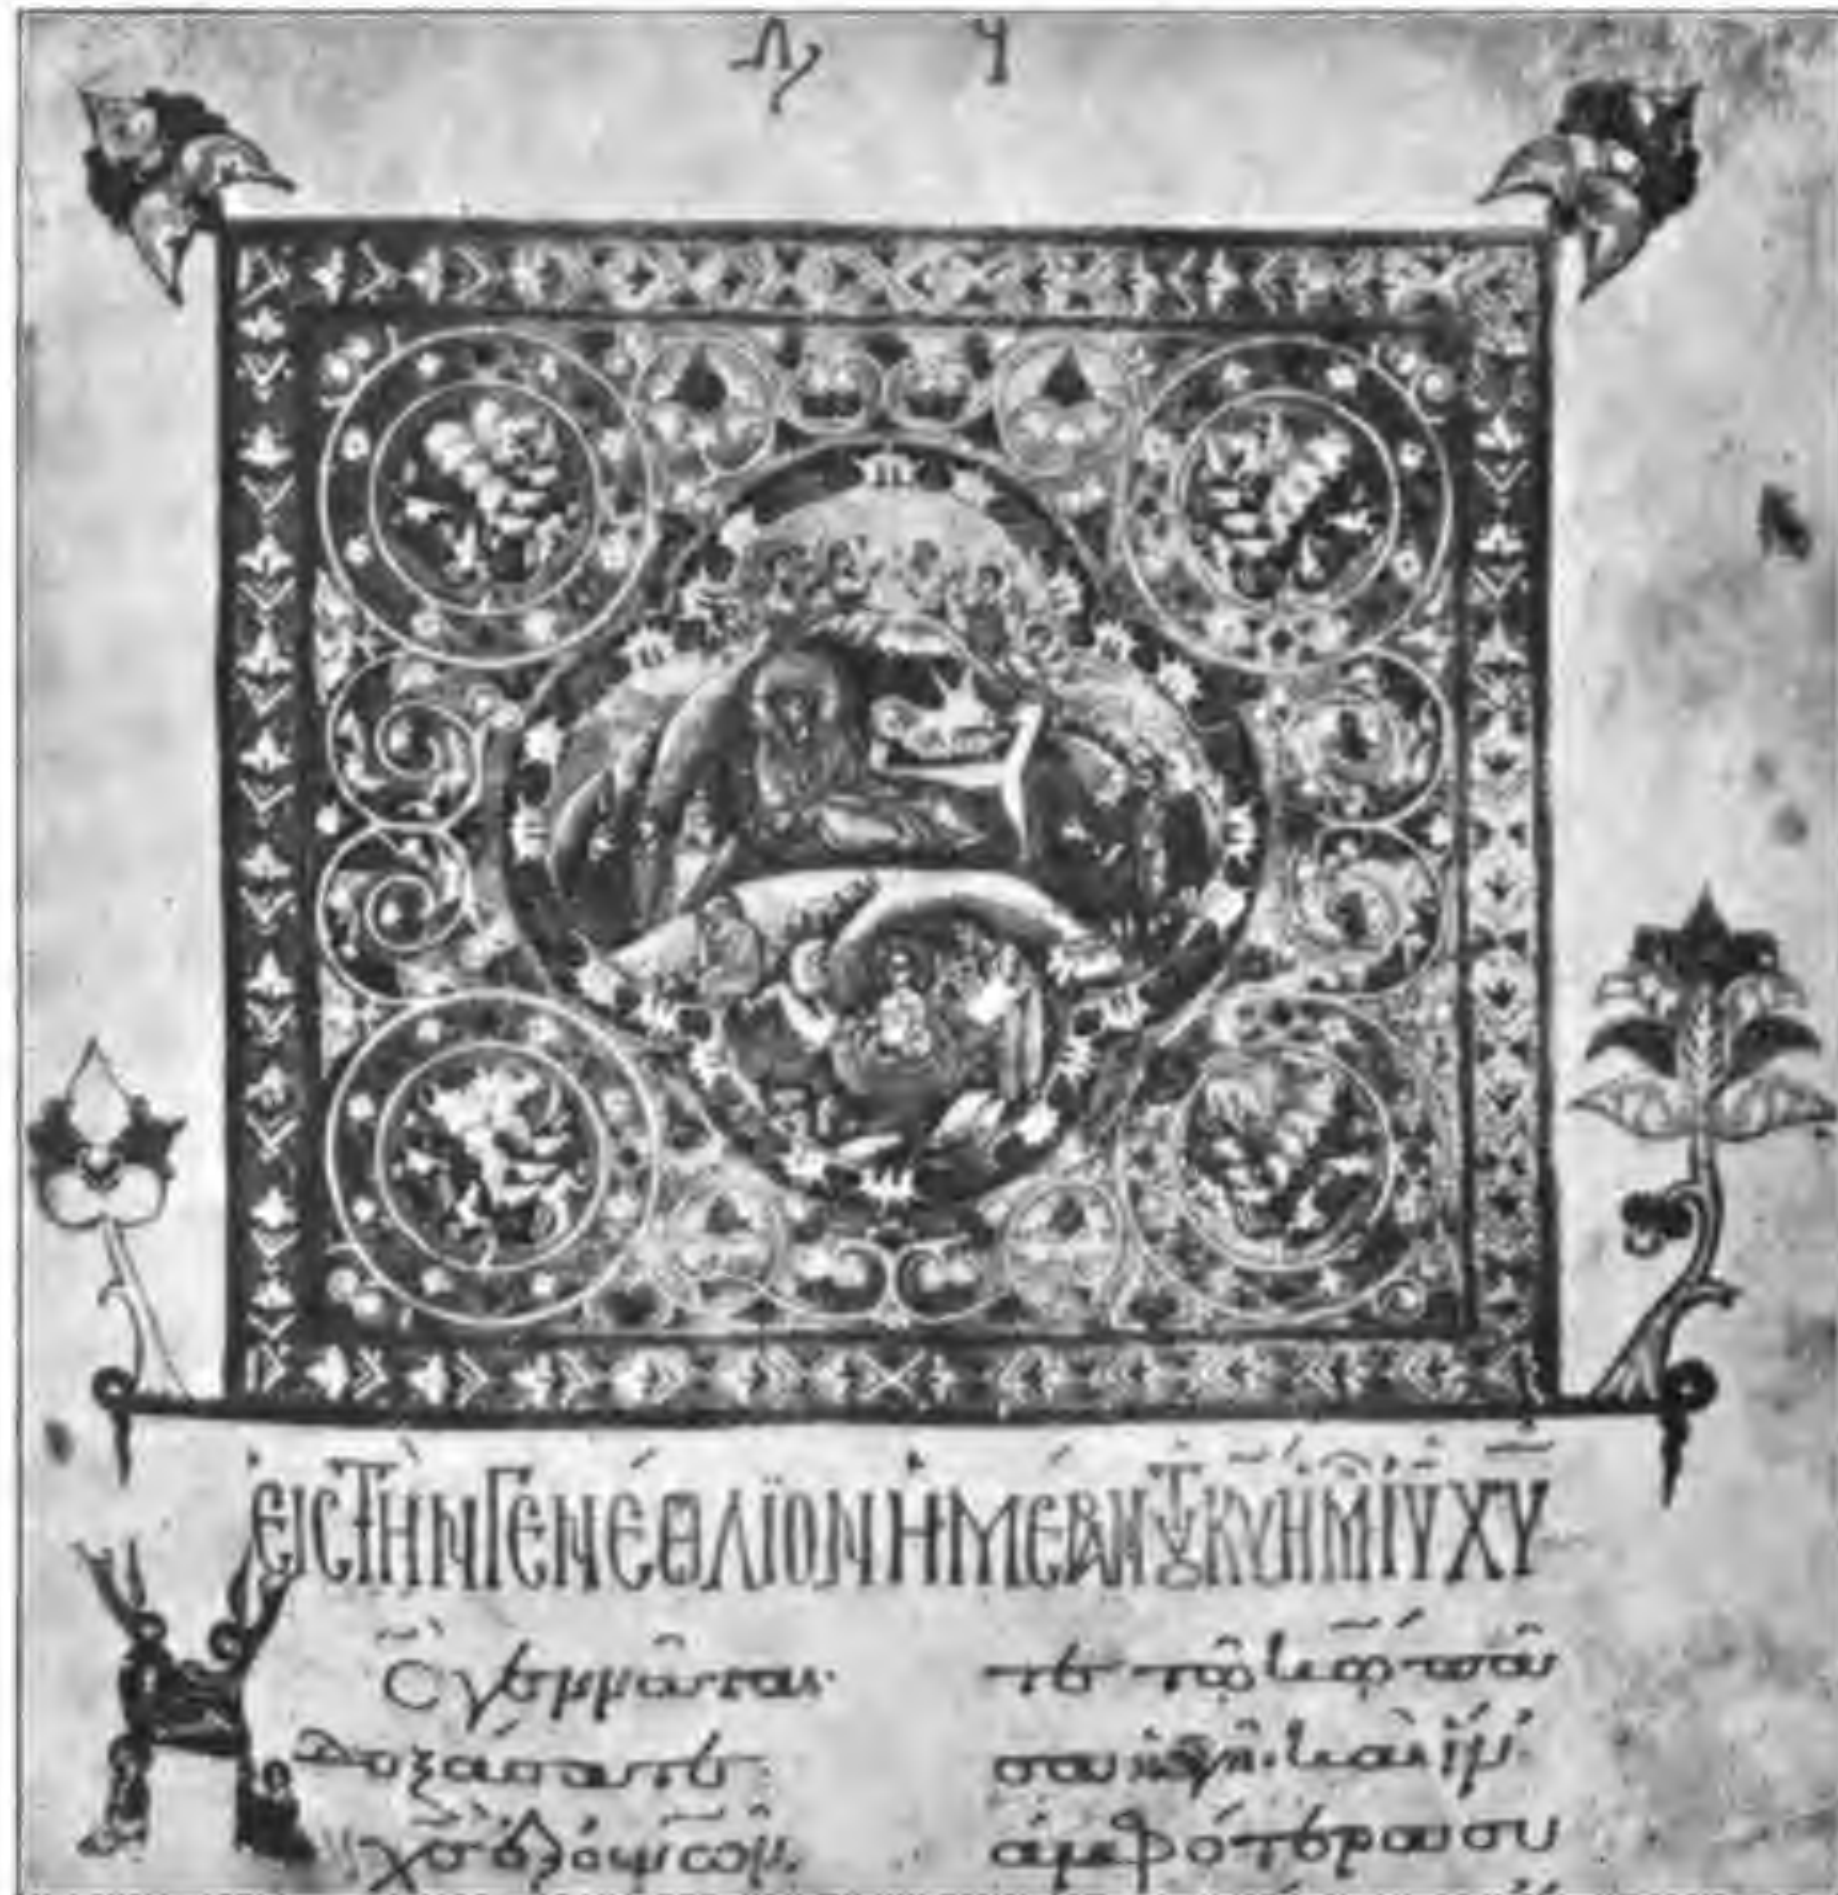 ΕΙC ΤῊΝ ΓΕΝΈΘΛΪΟΝ ἩΜΈΡΑΝ ΤΟΥ Κ͞Υ ἩΜ͂ Ι͞Υ Χ͞Υ
Χ͞C γεννᾶται·
δοξάσατε·
χ͞σ ἐξ ο͞υνῶν·
τε τῶ κ͞ω πᾶ
σα ἡ γῆ· καὶ ἵν'
ἀμφότερα συ